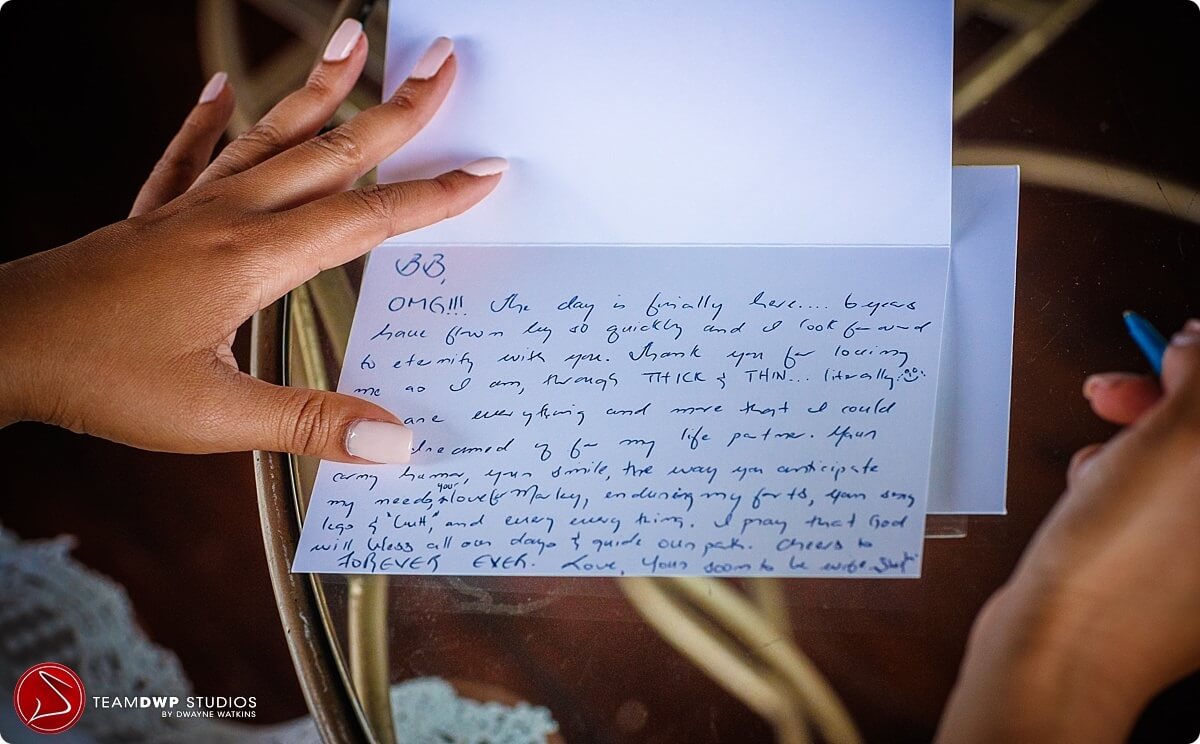 BB,
OMG!!! The day is finally here.... 6 years
have flown by so quickly and I look forward
to eternity with you. Thank you for loving
me as I am, through THICK & THIN... literally
are everything and more that I could
dreamed of for my life partner. Your
corny humor, your smile, the way you anticipate
my needs, your love for Marley, enduring my farts, your sexy
legs & "butt," and every every thing. I pray that God
will bless all our days & guide our path. Cheers to
FOREVER EVER. Love, Your soon to be wife
TEAMDWP STUDIOS
BY DWAYNE WATKINS